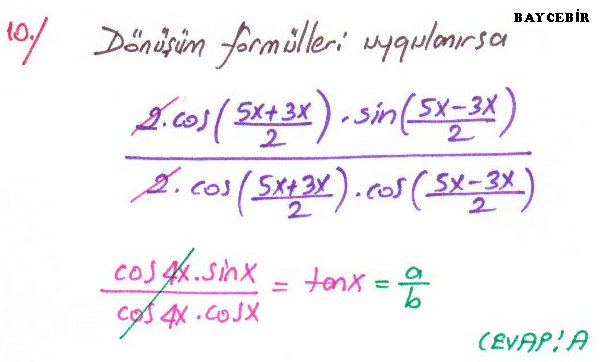 BAYCEBİR
10./ Dönüşüm formülleri uygulanırsa
2.cos(5x+3x/2).sin(5x-3x/2)
2.cos(5x+3x/2).cos(5x-3x/2)
cos4x.sinx/cos4x.cosx = tanx = a/b
CEVAP:A